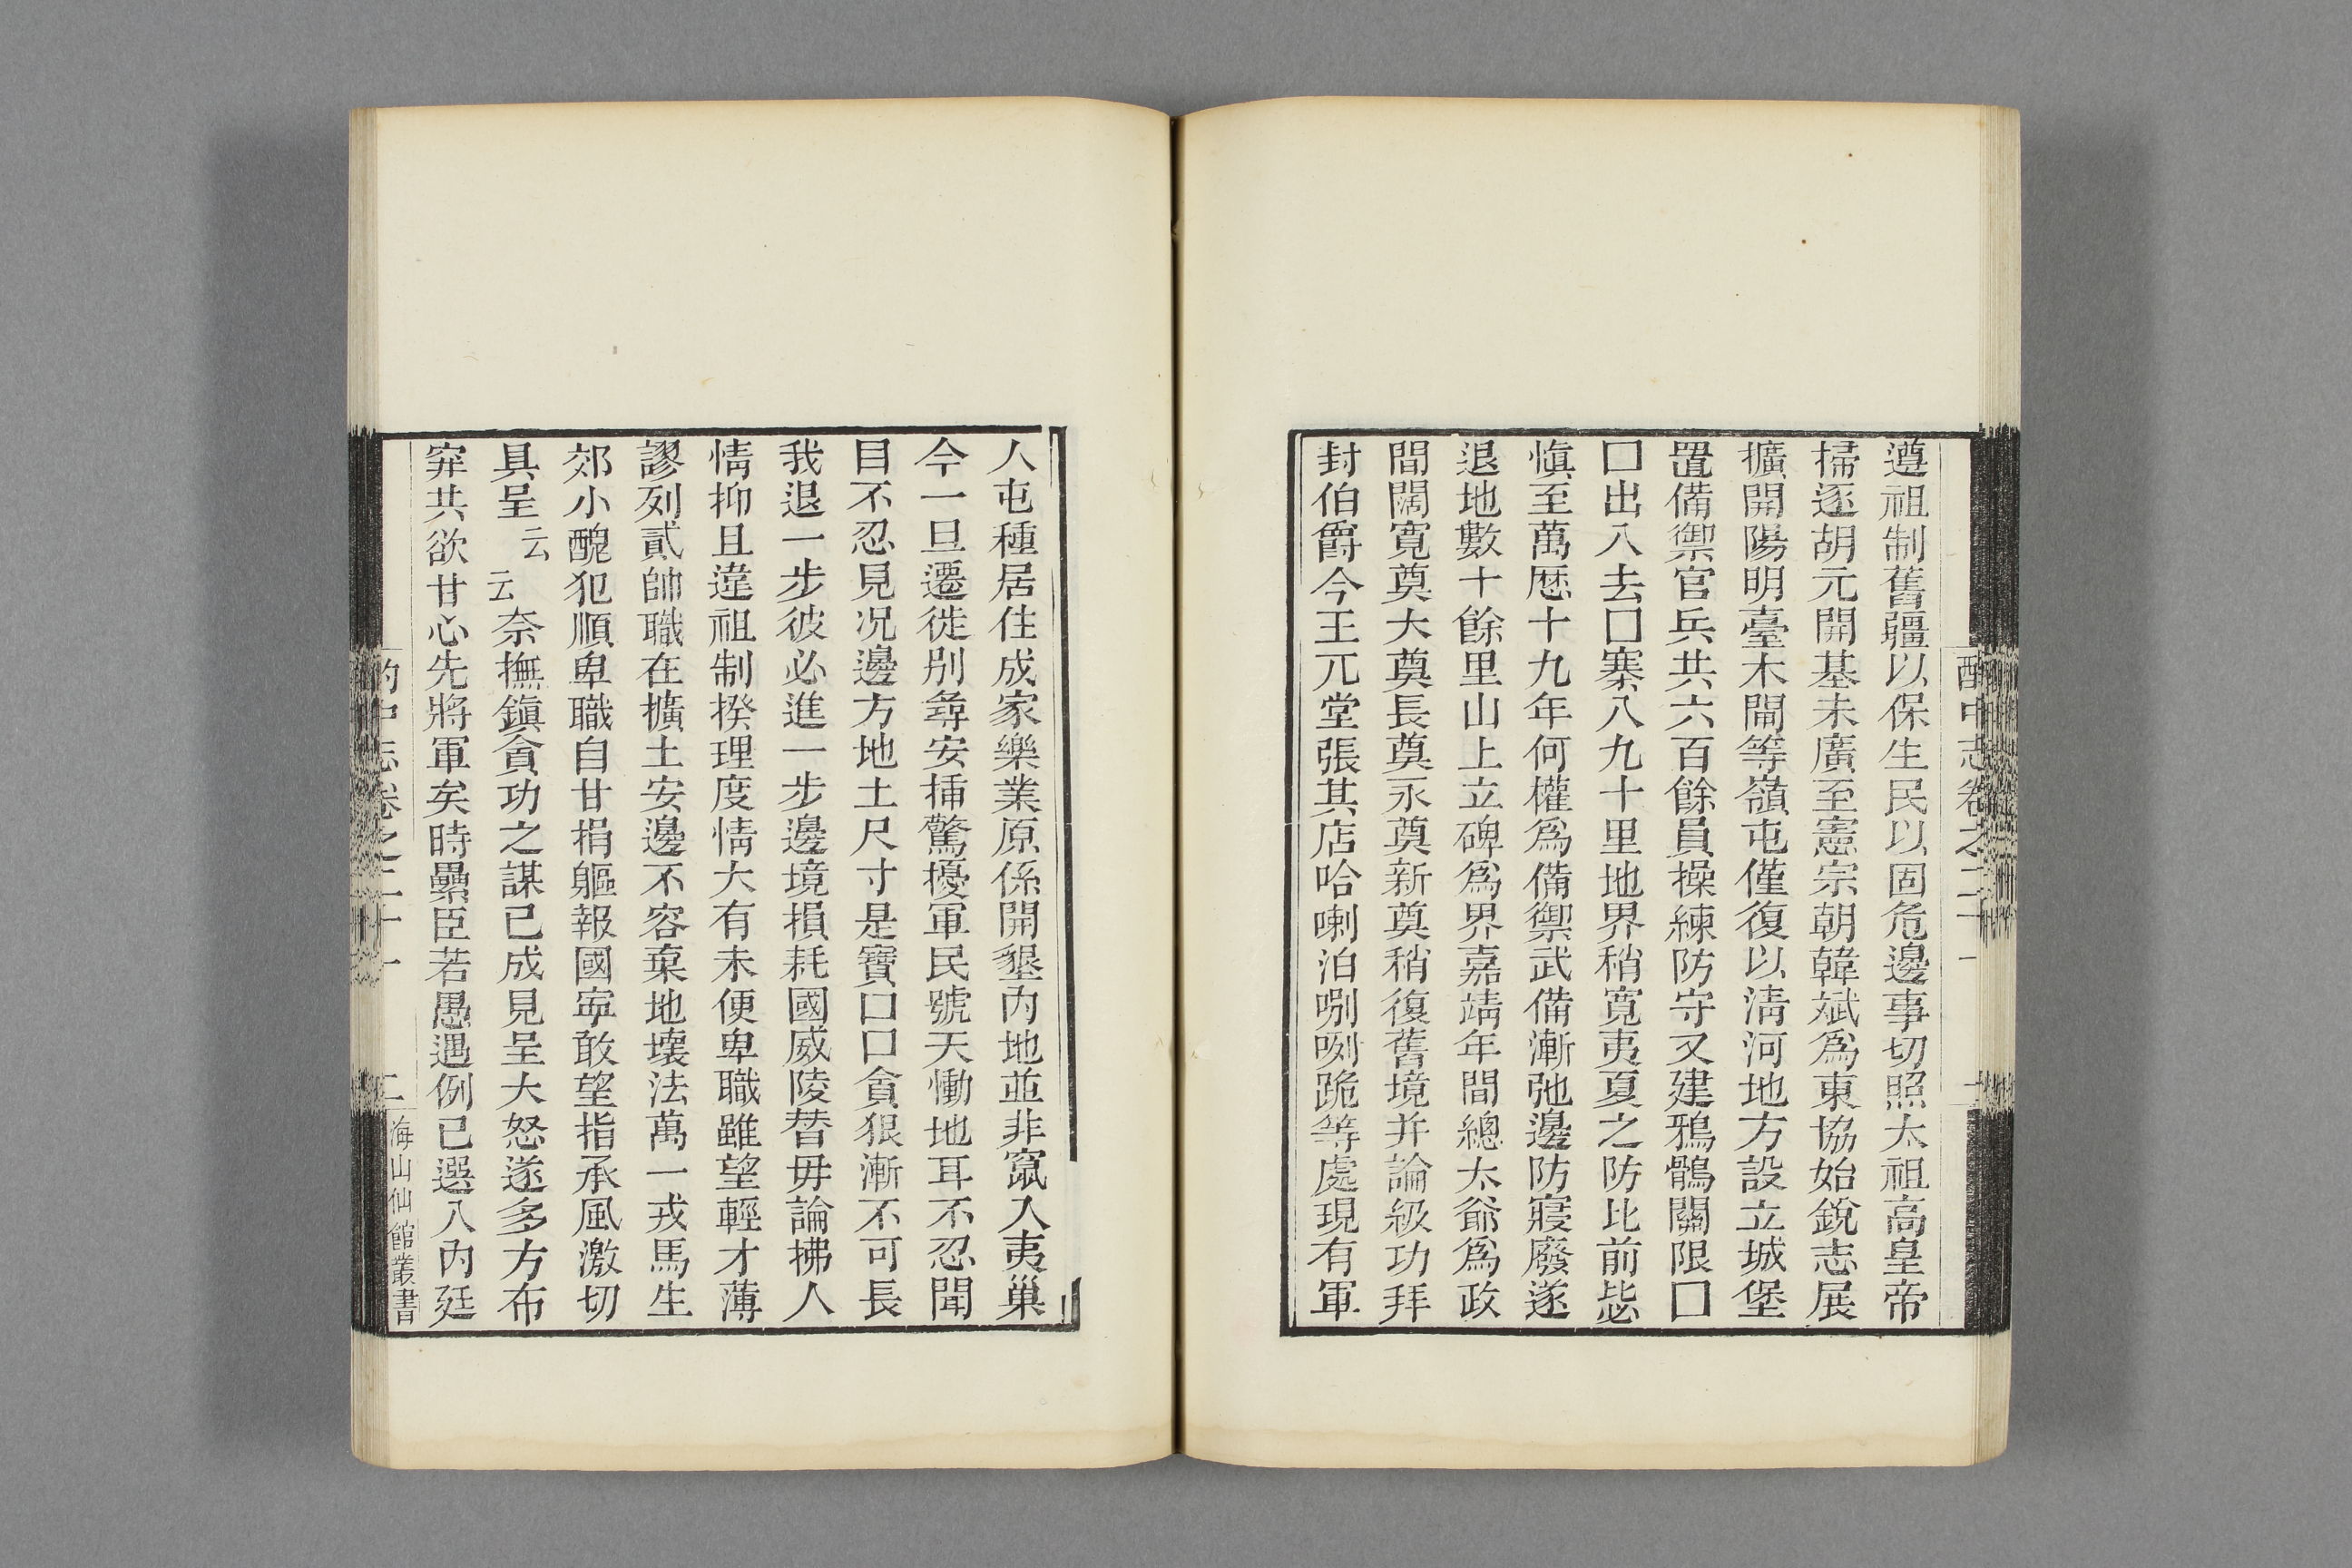 遵祖制舊疆以保生民以固危邊事切照太祖高皇帝
掃逐胡元開基未廣至憲宗朝韓斌爲東協始銳志展
擴開陽明臺木閘等嶺屯僅復以淸河地方設立城堡
置備禦官兵共六百餘員操練防守又建鴉鶻關限口
口出入去口寨八九十里地界稍寬夷夏之防比前毖
愼至萬厯十九年何權爲備禦武備漸弛邊防寢廢遂
退地數十餘里山上立碑爲界嘉靖年間總太爺爲政
間闊寬奠大奠長奠永奠新奠稍復舊境并論級功拜
封伯爵今王兀堂張其店哈喇泊咧咧跪等處現有軍
人屯種居住成家樂業原係開墾內地並非竄入夷巢
今一旦遷徙別尋安揷驚擾軍民號天慟地耳不忍聞
目不忍見况邊方地土尺寸是寶口口貪狠漸不可長
我退一步彼必進一步邊境損耗國威陵替毋論拂人
情抑且違祖制揆理度情大有未便卑職雖望輕才薄
謬列貳帥職在擴土安邊不容棄地壞法萬一戎馬生
郊小醜犯順卑職自甘捐軀報國寧敢望指承風激切
具呈云云奈撫鎭貪功之謀已成見呈大怒遂多方布
穽共欲甘心先將軍矣時纍臣若愚遇例已選入內廷
酌中志卷之二十一
二
海山仙館叢書